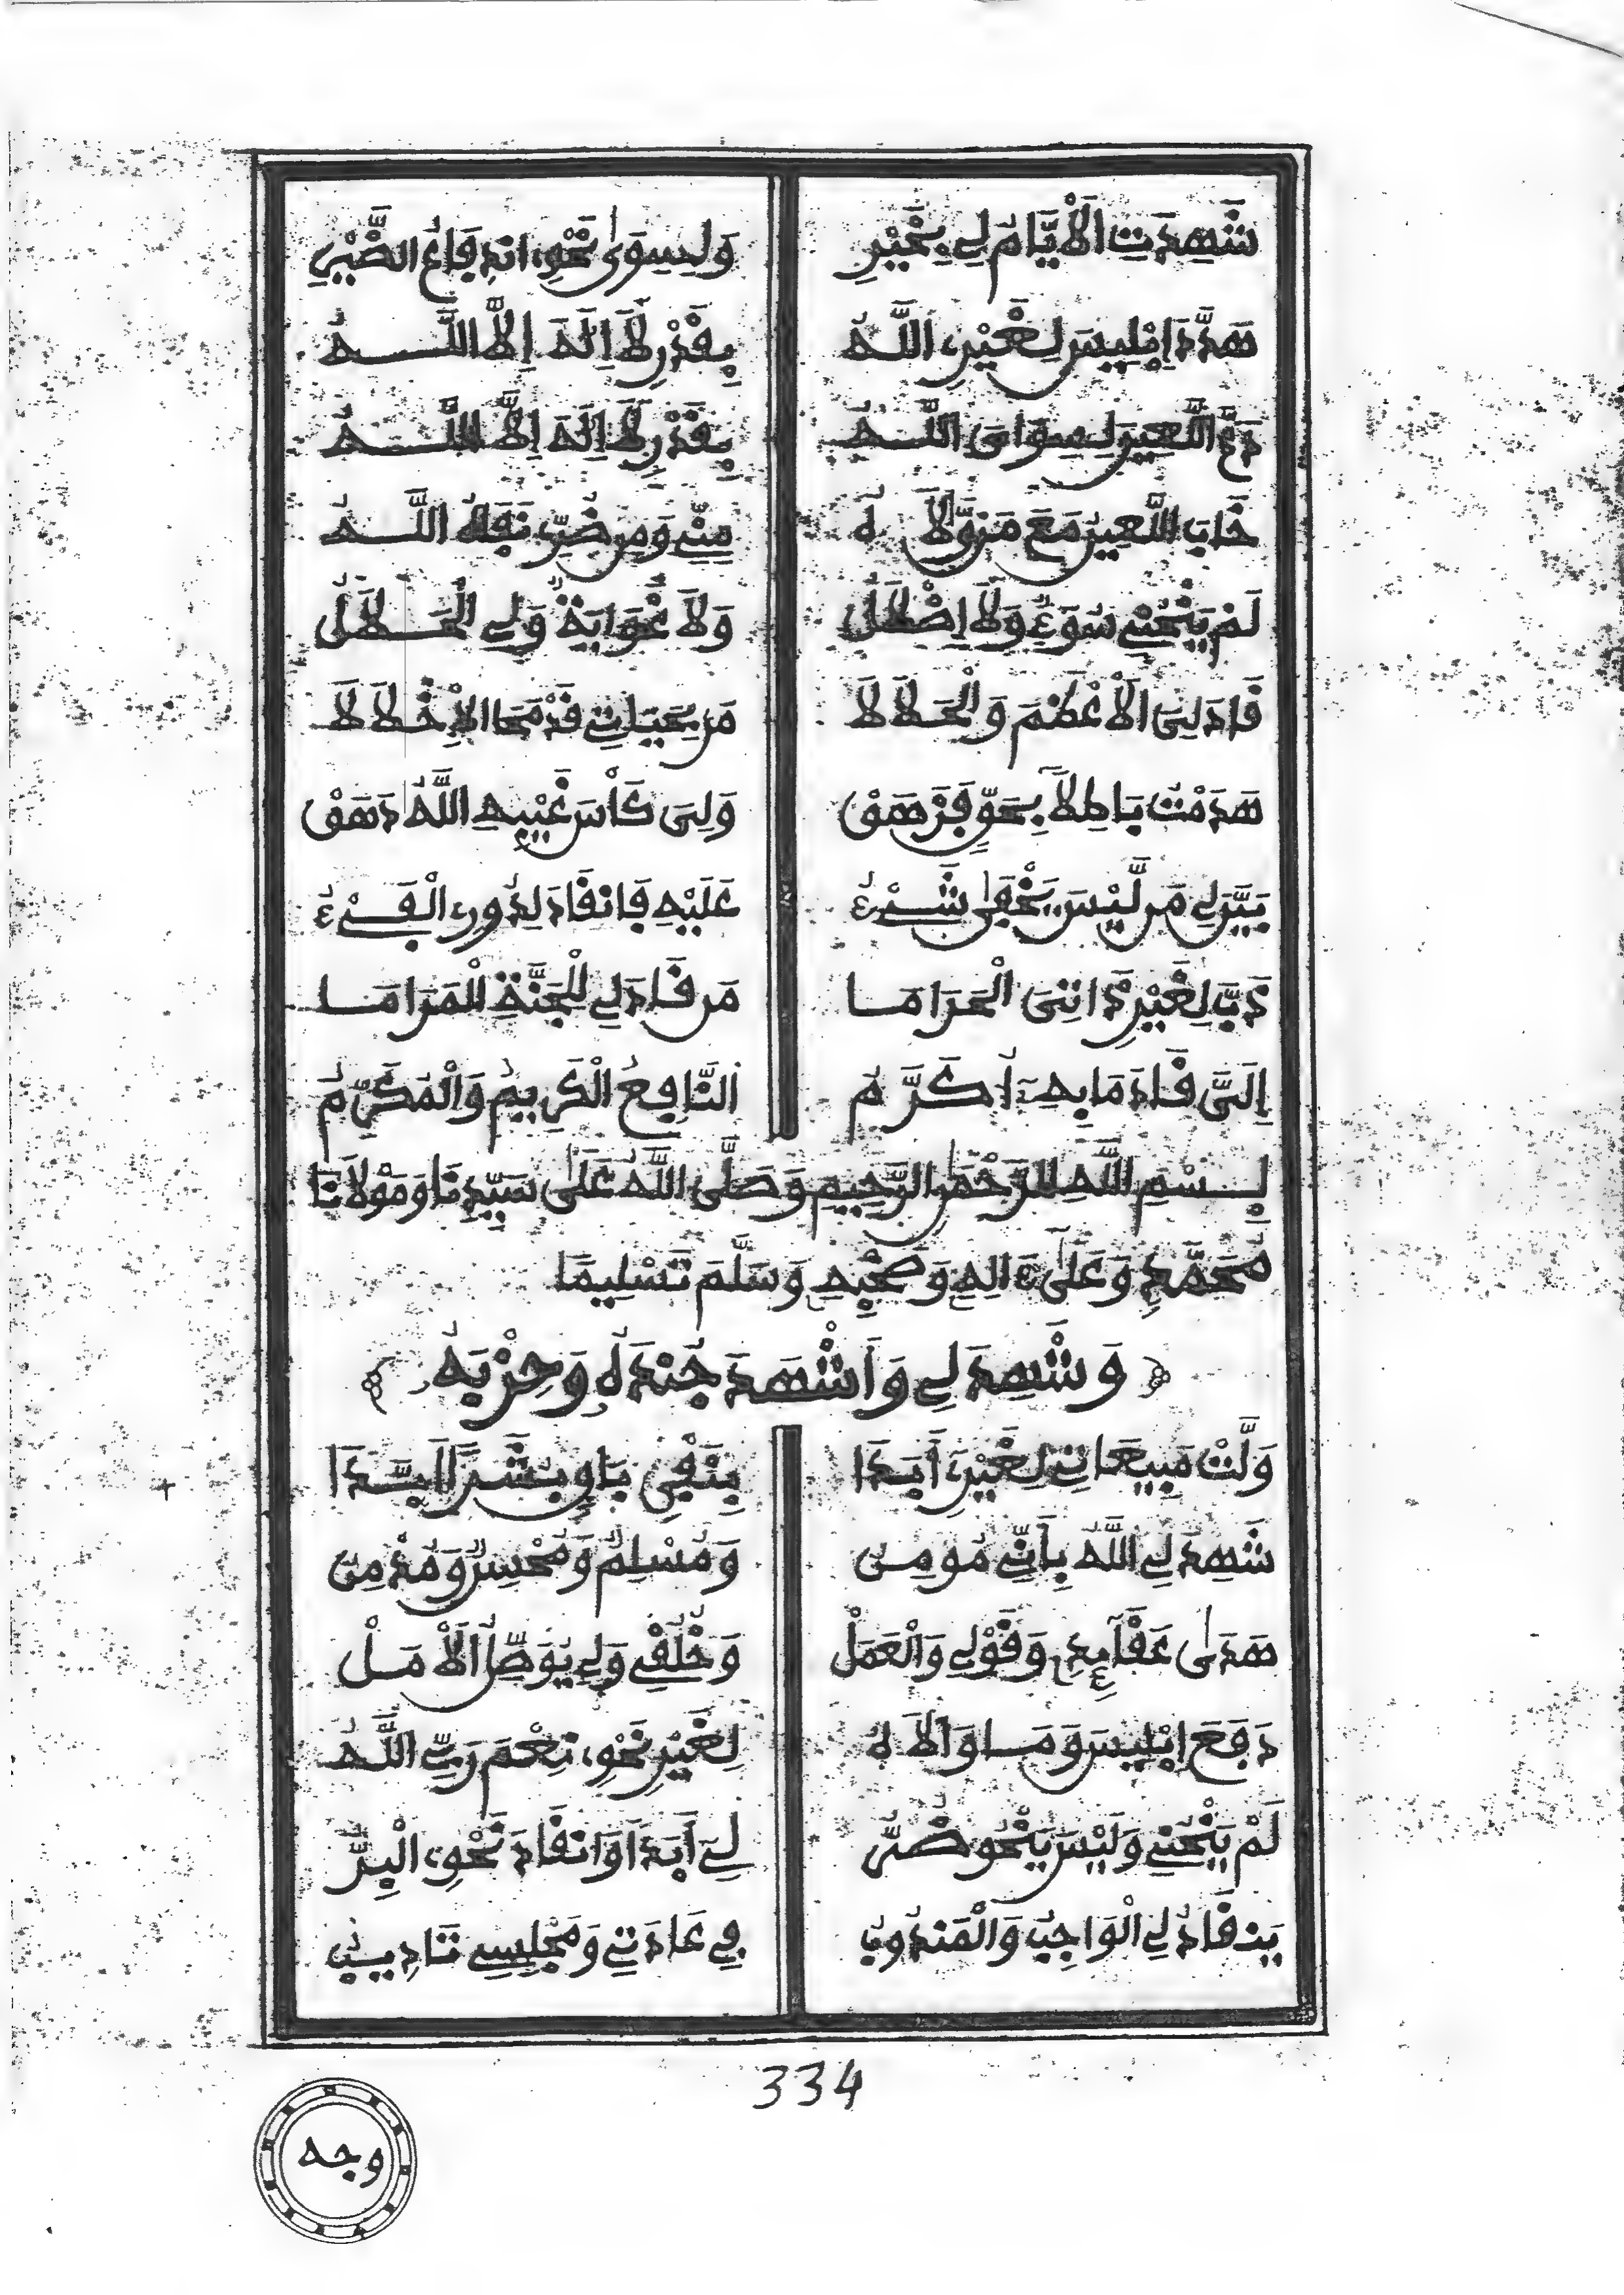 شَهِدَتِ الْأَيَّامُ لِي بِخَيْرِ وَلِسِوَى نَحْوِ انْدِفَاعُ الضَّيْرِ
هَدَّدَ إِبْلِيسَ لِغَيْرِ اللَّهُ بِقَدْرِ لَا إِلَهَ إِلَّا اللَّهُ
دَعَّ اللَّعِينَ لِسِوَاىَ اللَّهُ بِقَدْرِ لَا إِلَهَ إِلَّا اللَّهُ
خَابَ اللَّعِينُ مَعَ مَن وَّالَاهُ مِنِّي وَمِن ضُرِّ نَفَاهُ اللَّهُ
لَمْ يَنْحُنِي سُوءٌ وَلَا إِضْلَالُ وَلَا غَوَايَةٌ وَلِي الْحَلَالُ
قَادَ لِيَ الْأَعْظَمَ وَالْحَلَالَا مَن بِحَيَاتِي قَدْ مَحَا الْإِخْلَالَا
هَدَمْتُ بَاطِلًا بِحَقٍّ فَزَهَقْ وَلِىَ كَأْسَ غَيْبِهِ اللَّهُ دَهَقْ
بَيَّنَ لِي مَن لَّيْسَ يَخْفَى شَيْءُ عَلَيْهِ فَانقَادَ لِدُورِ الْفَيْءُ
ذَبَّ لِغَيْرِ ذَاتِىَ الْحَرَامَا مَن قَادَ لِي لِلْجَنَّةِ الْمَرَامَا
إِلَىَّ قَادَ مَا بِهِ أُكَرَّمُ النَّافِعُ الْكَرِيمُ وَالْمُكَرِّمُ
بِسْمِ اللَّهِ الرَّحْمَنِ الرَّحِيمِ وَصَلَّى اللَّهُ عَلَى سَيِّدِنَا وَمَوْلَانَا
مُحَمَّدٍ وَعَلَى ءَالِهِ وَصَحْبِهِ وَسَلَّمَ تَسْلِيمًا
وَشَهِدَ لِي وَأَشْهَدَ جُندَهُ وَحِزْبَهُ
وَلَّتْ مَبِيعَاتِي لِغَيْرِ أَبَدَا
شَهِدَ لِي اللَّهُ بِأَنِّي مُومِنُ وَمُسْلِمٌ وَمُحْسِنٌ وَمُدْمِنُ
هَدَى عَقَائِدِي وَقَوْلِي وَالْعَمَلْ وَخُلُقِي وَلِي يُوَصِّلُ الْأَمَلْ
دَفَعَ إِبْلِيسَ وَمَا وَالَاهُ لِغَيْرِ نَحْوِ نِعْمَ رَبِّي اللَّهُ
لَمْ يَنْحُنِي وَلَيْسَ يَنْحُو ضُرُّ لِي أَبَدًا وَانقَادَ نَحْوِ الْبِرُّ
يَنقَادُ لِي الْوَاجِبُ وَالْمَندُوبُ فِي عَادَتِي وَمَجْلِسِي تَادِيبُ
334
وجه